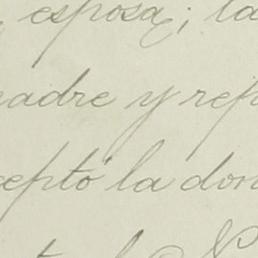 esposa; la
madre y rep
cepto la don